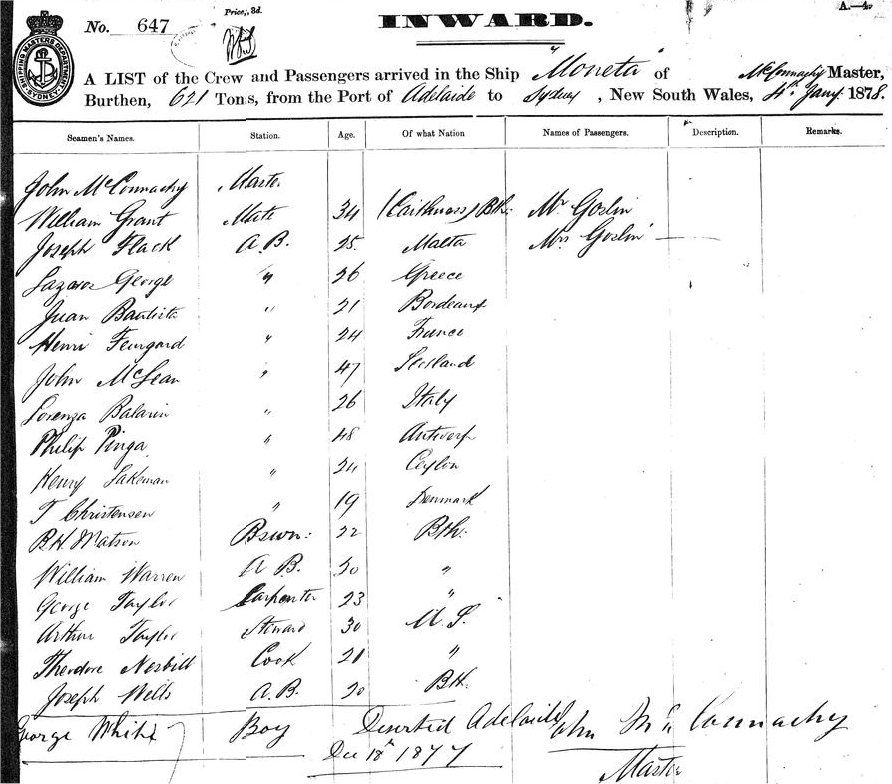 No. 647
Price, 3d.
INWARD.
A.—4.
SHIPPING MASTERS DEPARTMENT SYDNEY
A LIST of the Crew and Passengers arrived in the Ship "Moneta" of McConnachy Master,
Burthen, 621 Tons, from the Port of Adelaide to Sydney, New South Wales, 4th Jany. 1878.
Seamen's Names. Station. Age. Of what Nation Names of Passengers. Description. Remarks.
John McConnachy Master
William Grant Mate 34 (Caithness) Bth: Mr Goslin
Joseph Flack A.B. 25. Malta Mrs Goslin
Lazaros George " 26 Greece
Juan Bautista " 21 Bordeaux
Henri Feurgard " 24 France
John McLean " 47 Scotland
Lorenza Balarin " 26 Italy
Philip Pinga " 48 Antwerp
Henry Lakeman " 24 Ceylon
T Christensen " 19 Denmark
B.H. Matson Bswn: 22 Bth:
William Warren A B. 30 "
George Taylor Carpenter 23 "
Arthur Taylor Steward 30 U.S.
Theodore Nesbitt Cook 21 "
Joseph Wells A.B. 20 Bth.
George White Boy Deserted Adelaide John McConnachy
Dec 18th 1877 Master